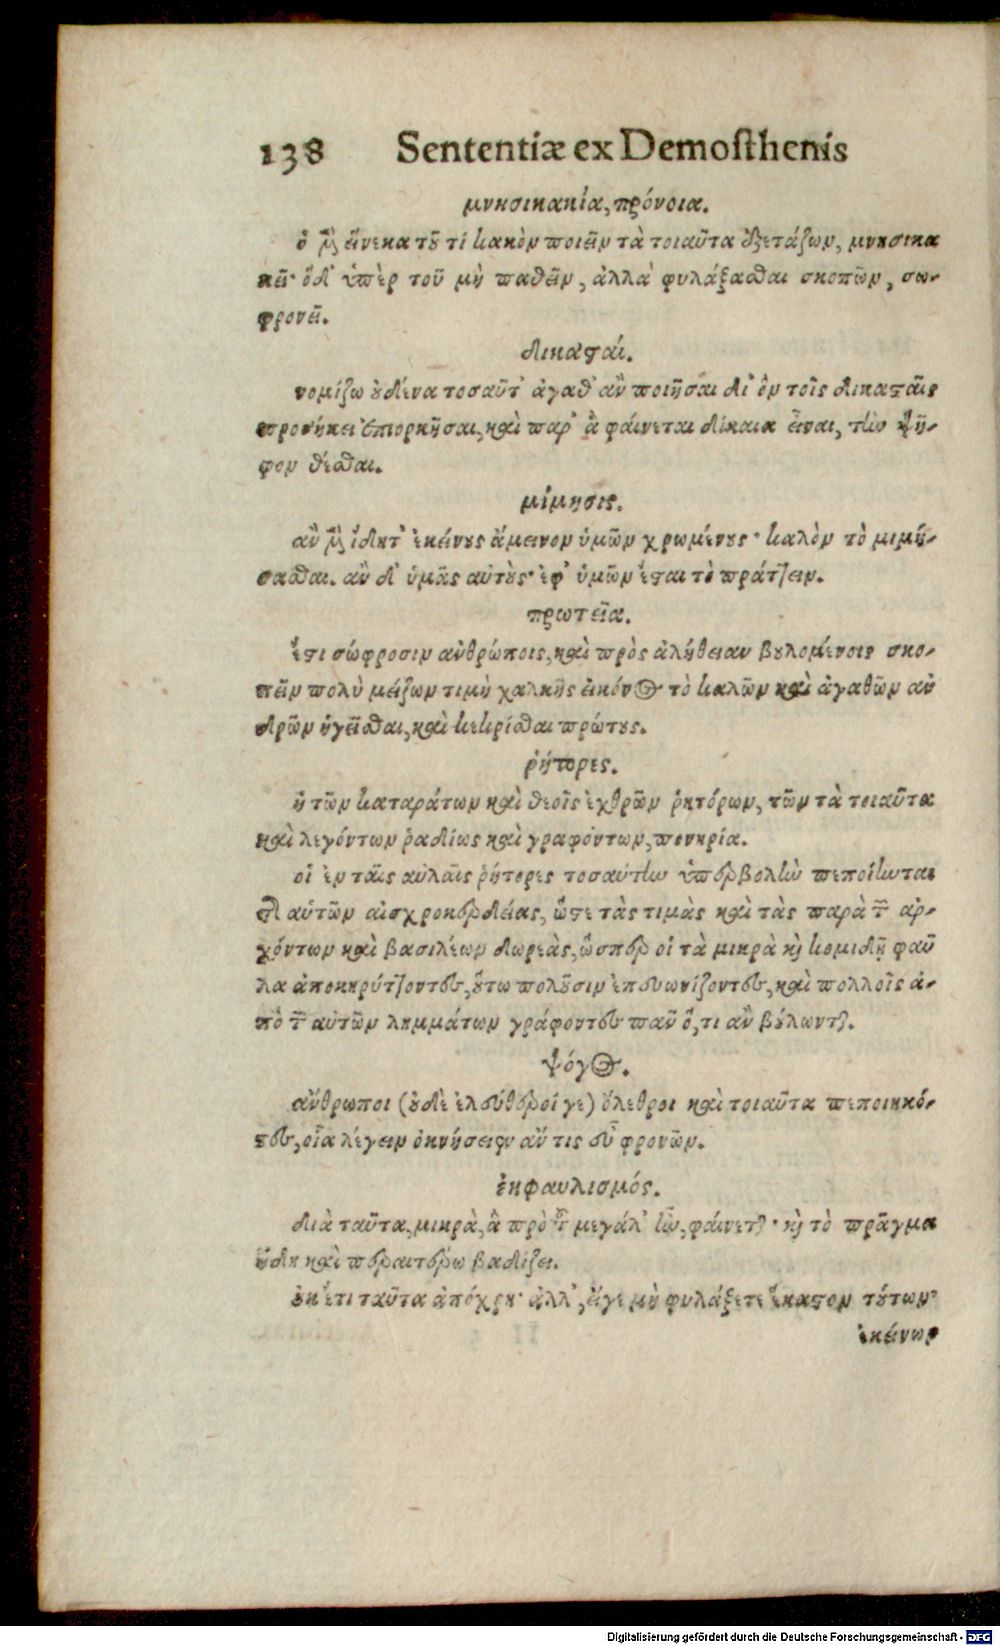 138 Sententiæ ex Demosthenis
μνησικακία, πρόνοια.
ὁ μὲν εἵνεκα τοῦ τί κακὸν ποιεῖν τὰ τοιαῦτα ἐξετάζων, μνησικα
κεῖ· ὁ δ' ὑπὲρ τοῦ μὴ παθεῖν, ἀλλὰ φυλάξασθαι σκοπῶν, σω-
φρονεῖ.
δικασταί.
νομίζω οὐδένα τοσαῦτ' ἀγαθ' ἂν ποιῆσαι δι' ὃν τοῖς δικασταῖς
προσήκει ἐπιορκῆσαι, καὶ παρ' ἃ φαίνεται δίκαια εἶναι, τὴν ψῆ-
φον θέσθαι.
μίμησις.
ἂν μὲν ἴδητ' ἐκείνους ἄμεινον ὑμῶν χρωμένους· καλὸν τὸ μιμή-
σασθαι. ἂν δ' ὑμᾶς αὐτοὺς· ἐφ' ὑμῶν ἔσται τὸ πράττειν.
πρωτεῖα.
ἔστι σώφροσιν ἀνθρώποις, καὶ πρὸς ἀλήθειαν βουλομένοις σκο-
πεῖν πολὺ μείζων τιμὴ χαλκῆς εἰκόνος τὸ καλῶν καὶ ἀγαθῶν ἀν
δρῶν ἡγεῖσθαι, καὶ κεκρίσθαι πρώτους.
ῥήτορες.
ἡ τῶν καταράτων καὶ θεοῖς ἐχθρῶν ῥητόρων, τῶν τὰ τοιαῦτα
καὶ λεγόντων ῥαδίως καὶ γραφόντων, πονηρία.
οἱ ἐν ταῖς αὐλαῖς ῥήτορες τοσαύτην ὑπερβολὴν πεποίηνται
τῆς αὑτῶν αἰσχροκερδείας, ὥστε τὰς τιμὰς καὶ τὰς παρὰ τῶν ἀρ-
χόντων καὶ βασιλέων δωρεὰς, ὥσπερ οἱ τὰ μικρὰ καὶ κομιδῇ φαῦ
λα ἀποκηρύττοντες, οὕτω πολοῦσιν ἐπευωνίζοντες, καὶ πολλοῖς ἀ-
πὸ τῶν αὐτῶν λημμάτων γράφοντες πᾶν ὅ, τι ἂν βούλωνται.
ψόγος.
ἄνθρωποι (οὐδὲ ἐλεύθεροί γε) ὄλεθροι καὶ τοιαῦτα πεποιηκό-
τες, οἷα λέγειν ὀκνήσειεν ἄν τις εὖ φρονῶν.
ἐκφαυλισμός.
διὰ ταῦτα, μικρὰ, ἃ πρὸ τοῦ μεγάλ' ἦν, φαίνεται· καὶ τὸ πρᾶγμα
ἤδη καὶ περαιτέρω βαδίζει.
οὐκ ἔτι ταῦτα ἀπόχρη· ἀλλ', εἴγε μὴ φυλάξετε ἕκαστον τούτων
ἐκείνων
Digitalisierung gefördert durch die Deutsche Forschungsgemeinschaft - DFG